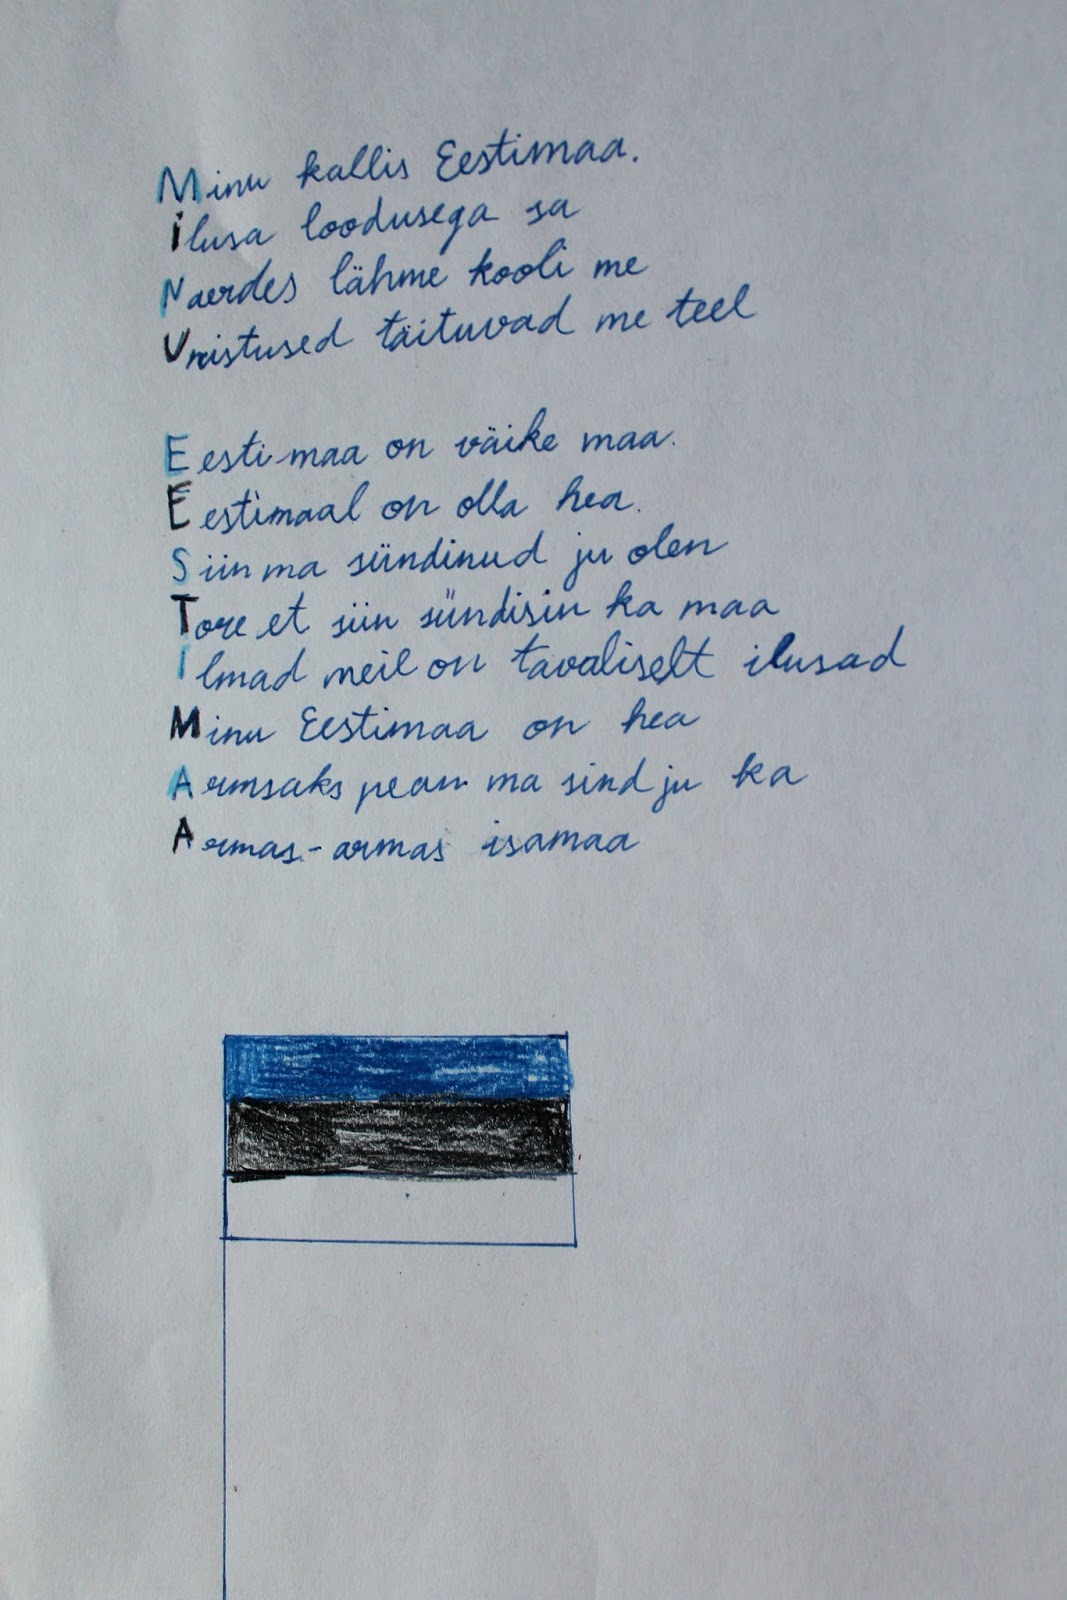 Minu kallis Eestimaa.
ilusa loodusega sa
Naerdes lähme kooli me
Unistused täituvad me teel
Eestimaa on väike maa.
Eestimaal on olla hea.
Siin ma sündinud ju olen
Tore et siin sündisin ka maa
Ilmad meil on tavaliselt ilusad
Minu Eestimaa on hea
Armsaks pean ma sind ju ka
Armas-armas isamaa